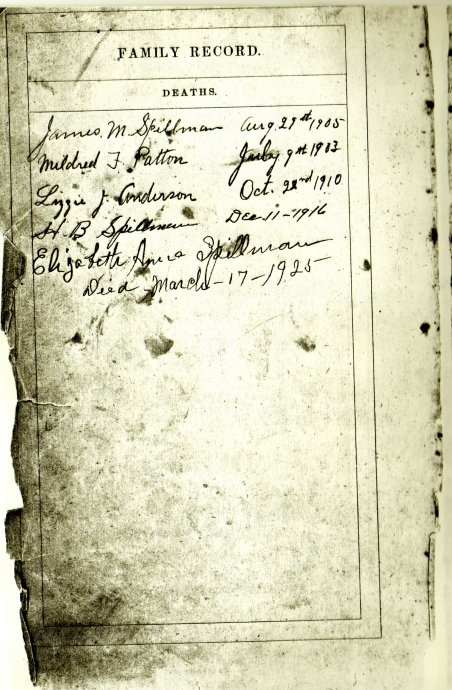 FAMILY RECORD.
DEATHS.
James. M. Spillman Aug. 29st 1905
Mildred F. Patton July 9st 1903
Lizzie J. Anderson Oct. 22nd 1910
H. B Spillman Dec 11-1916
Elizabeth Anna Spillman
Died March-17-1925